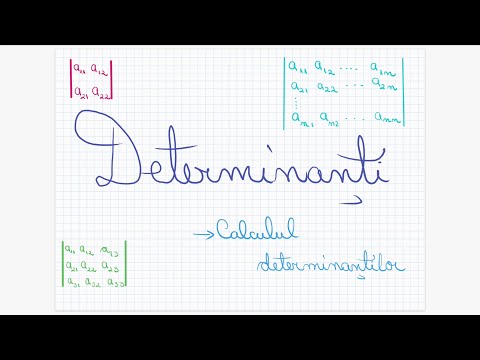 |a₁₁ a₁₂|
|a₂₁ a₂₂|
|a₁₁ a₁₂ .... a₁ₙ|
|a₂₁ a₂₂ ... a₂ₙ|
⋮
|aₙ₁ aₙ₂ ... aₙₙ|
Determinanți
→Calculul
determinanților
|a₁₁ a₁₂ a₁₃|
|a₂₁ a₂₂ a₂₃|
|a₃₁ a₃₂ a₃₃|